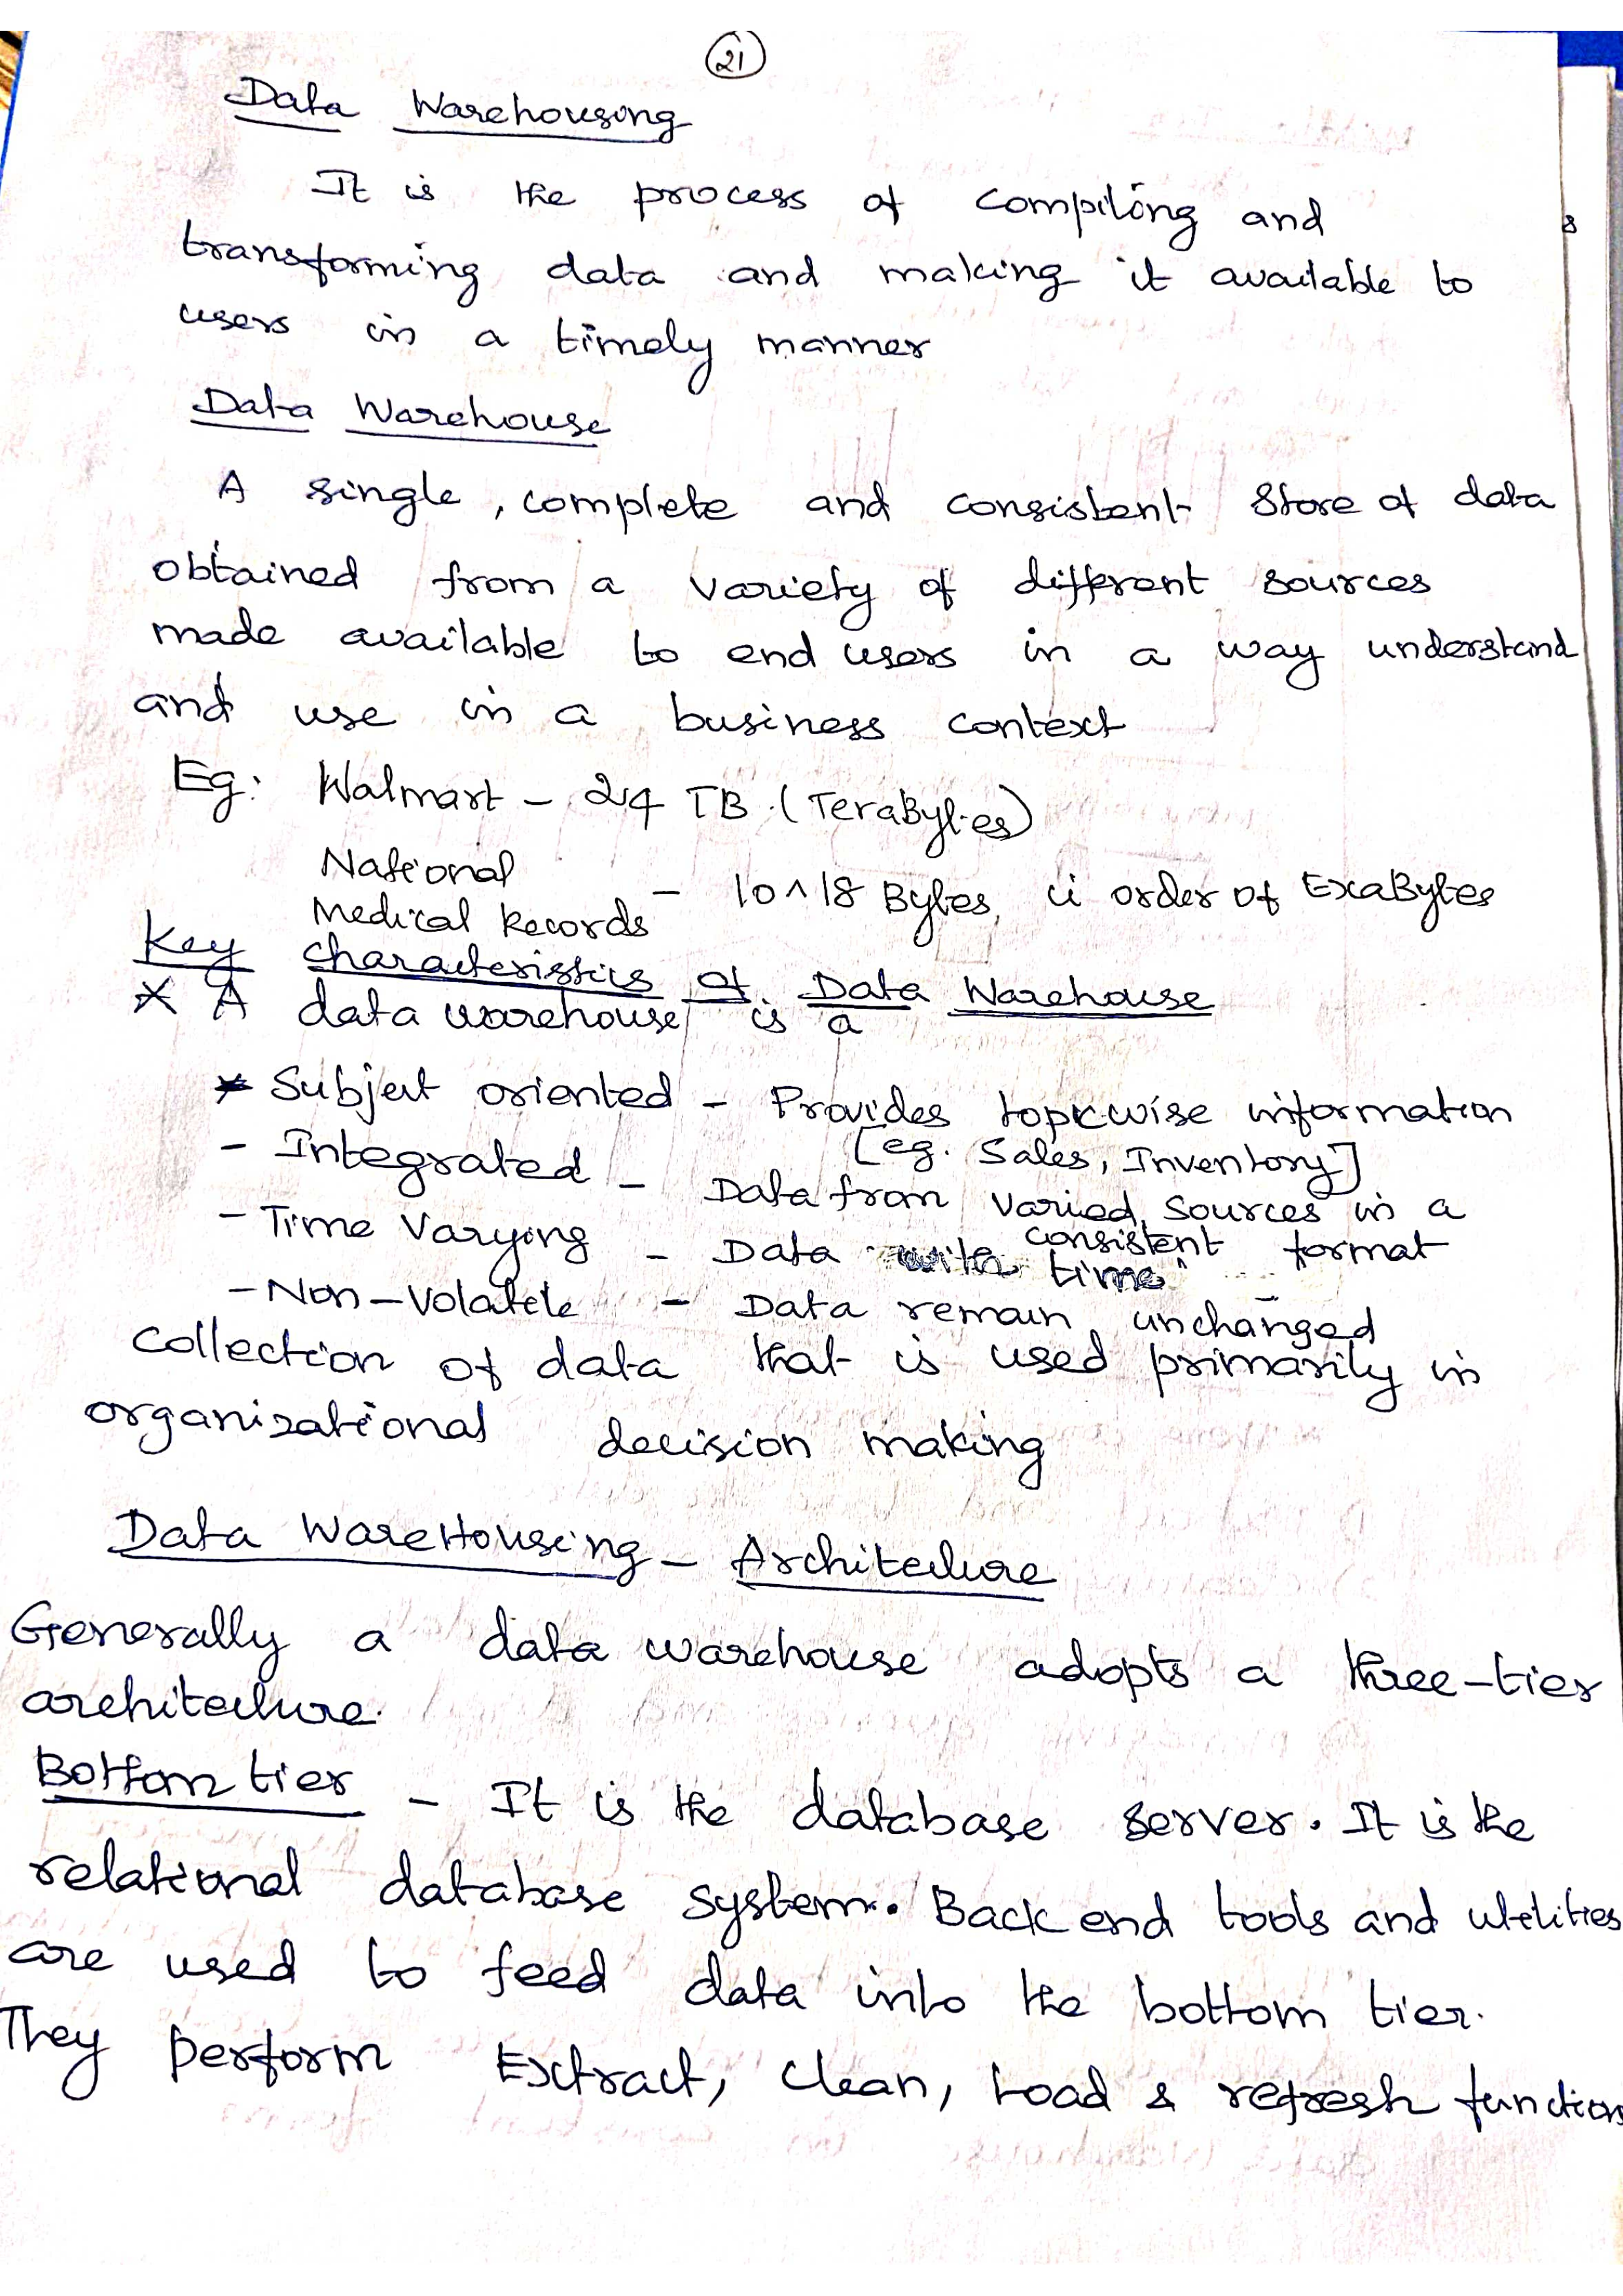 21
Data Warehousing
It is the process of compiling and
transforming data and making it available to
users in a timely manner
Data Warehouse
A single, complete and consistent store of data
obtained from a variety of different sources
made available to end users in a way understand
and use in a business context
Eg: Walmart - 24 TB (TeraBytes)
National
Medical Records - 10^18 Bytes, ii order of ExaBytes
Key Characteristics of Data Warehouse
* A data warehouse is a
* Subject oriented - Provides topicwise information
[eg. Sales, Inventory]
- Integrated - Data from varied sources in a
consistent format
- Time Varying - Data with time
- Non-Volatile - Data remain unchanged
Collection of data that is used primarily in
organizational decision making
Data WareHousing - Architecture
Generally a data warehouse adopts a three-tier
architecture.
Bottom tier - It is the database server. It is the
relational database system. Back end tools and utilities
are used to feed data into the bottom tier.
They perform Extract, Clean, Load & refresh function